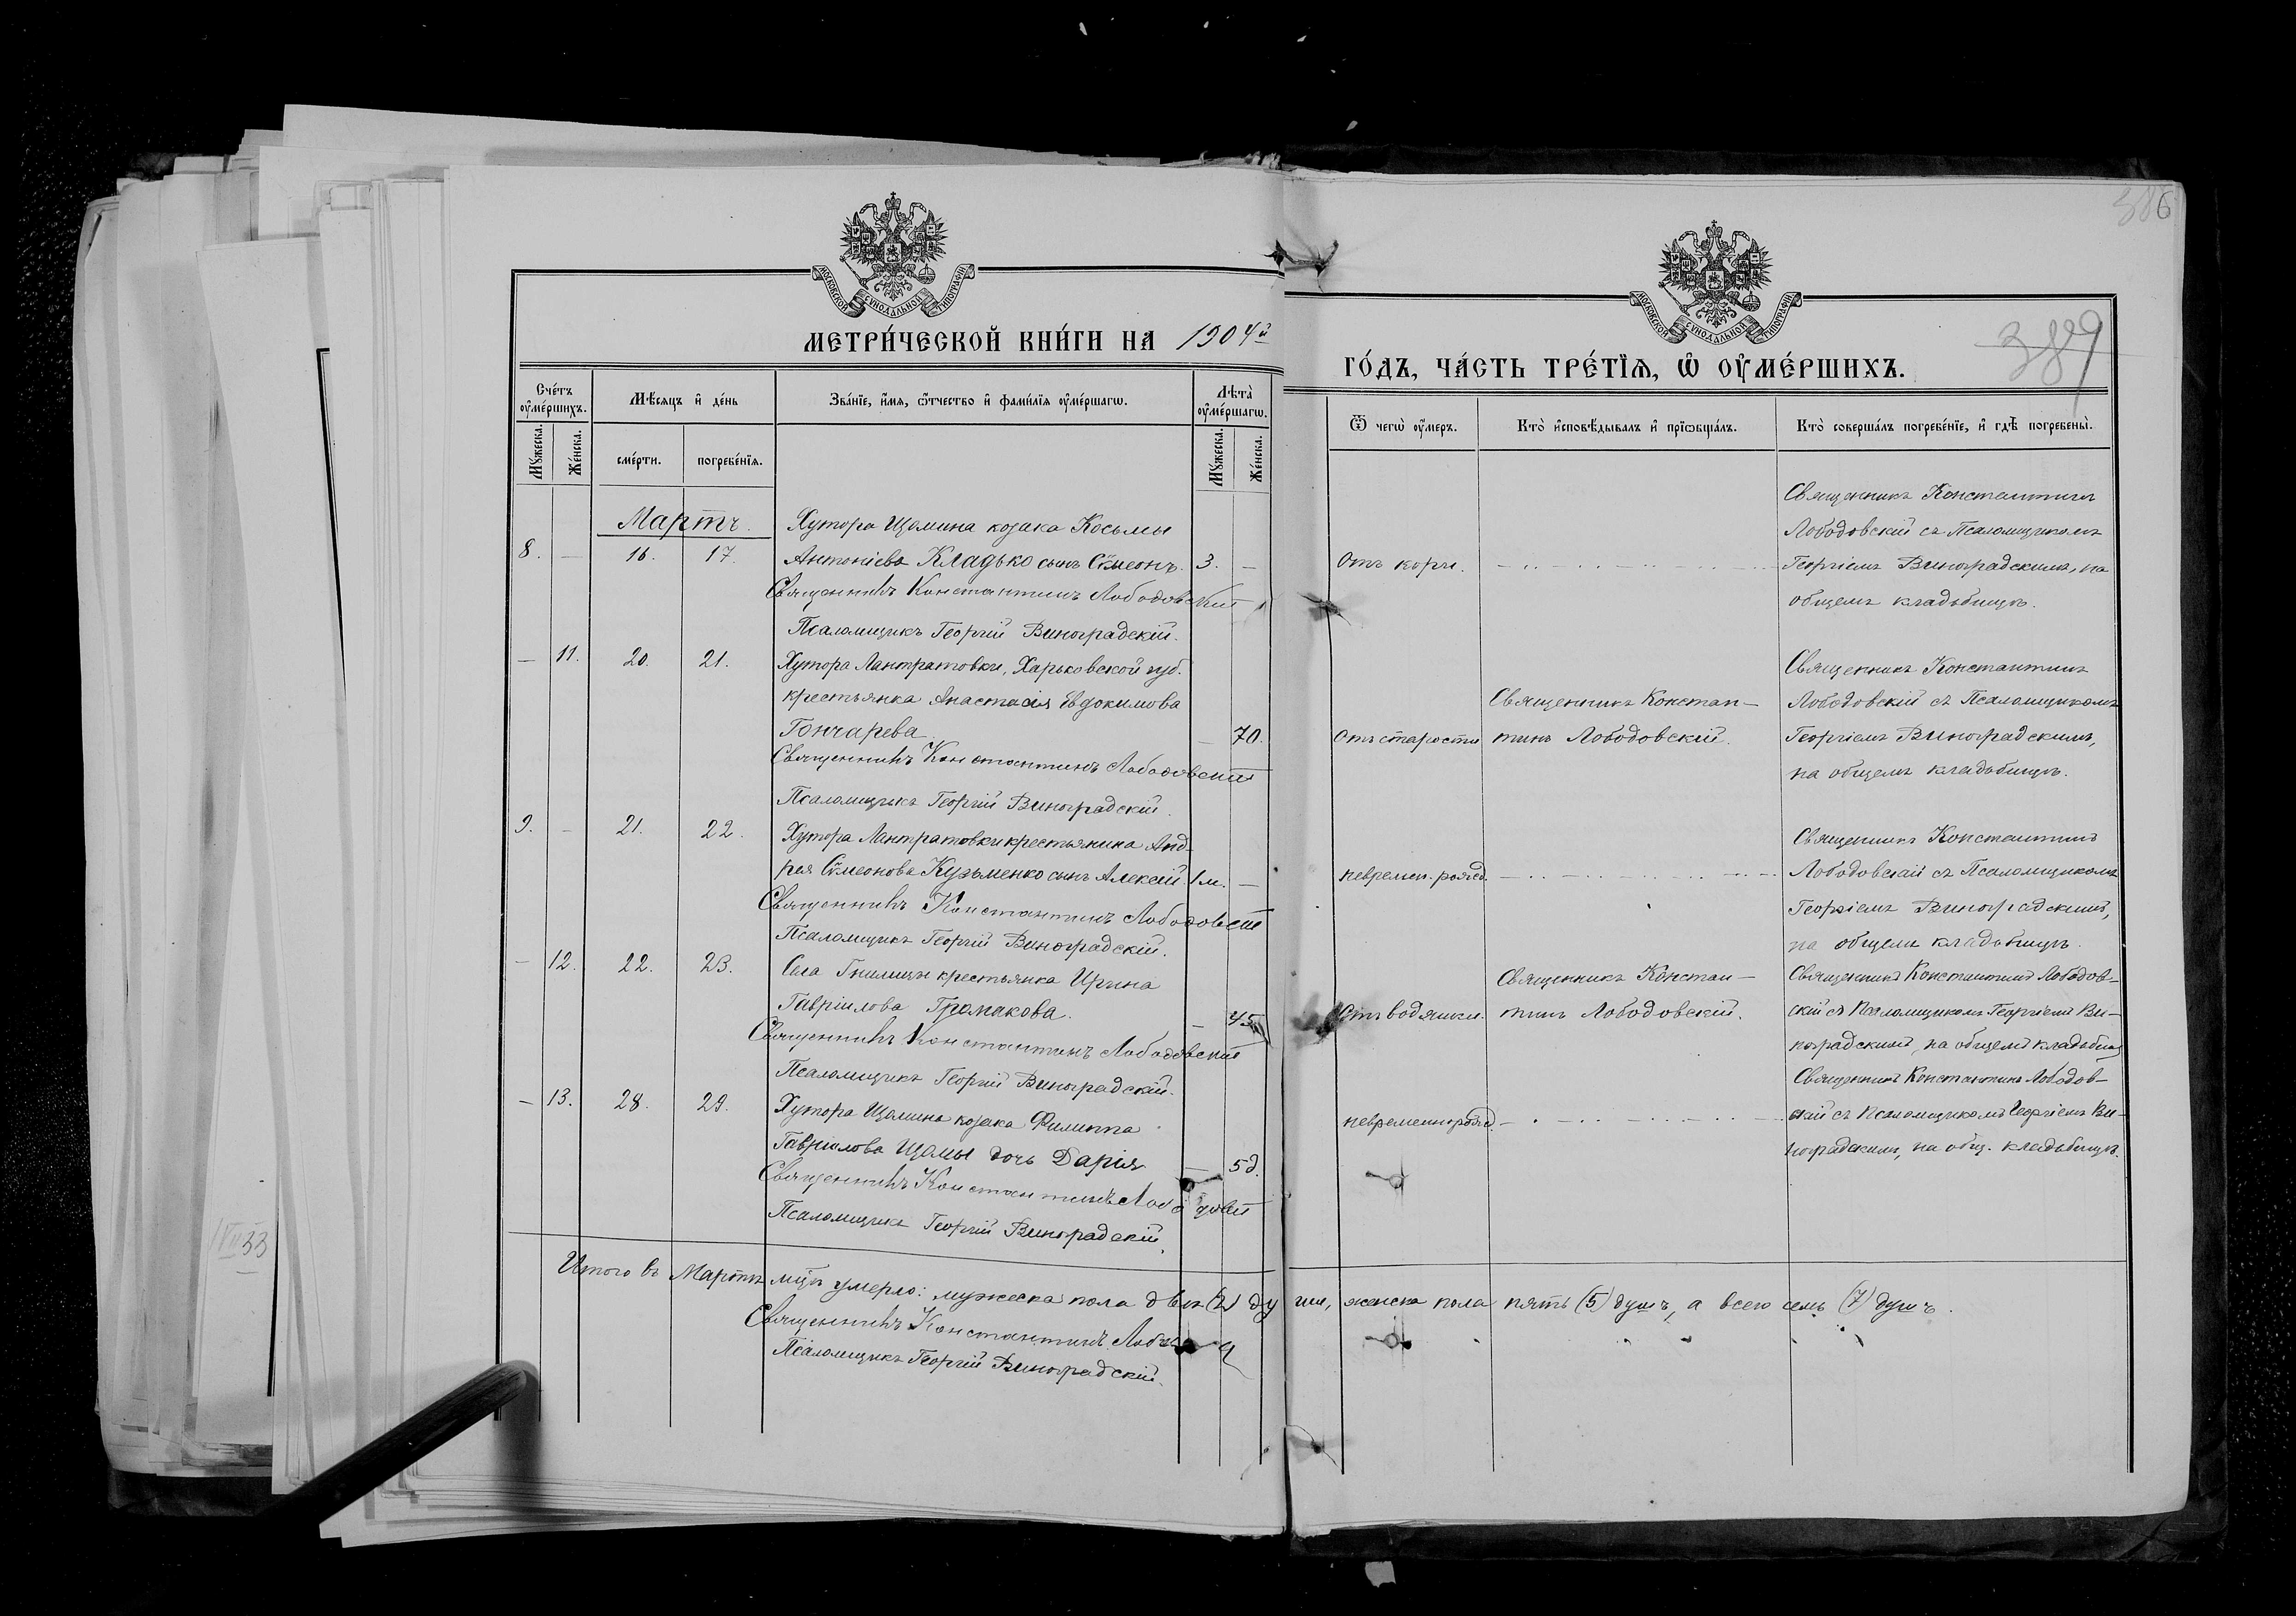 386
МОСКОВСКОЙ СУНОДАЛЬНОЙ ТИПОГРАФІИ
МОСКОВСКОЙ СУНОДАЛЬНОЙ ТИПОГРАФІИ
МЕТРИ́ЧЕСКОЙ КНИ́ГИ НА 1904й
ГО́ДЪ, ЧА́СТЬ ТРЕ́ТІѦ, Ѡ ОУМЕ́РШИХЪ.
389
Сче́тъ оуме́ршихъ.
Мѣсяцъ и де́нь
Зва́нїе, и́мя, ѻтчество и фами́лїя оуме́ршагѡ.
Лѣта̀ оуме́ршагѡ.
Мꙋжеска.
Же́нска.
сме́рти.
погребе́нїя.
Мꙋжеска.
Же́нска.
Ѿ чегѡ̀ оу́меръ.
Кто̀ исповѣ́дывалъ и прїѡбща́лъ.
Кто̀ соверша́лъ погребе́нїе, и гдѣ̀ погребены̀.
Мартъ.
Хутора Щомина козака Косьмы
8. — 16. 17. Антоніева Кладько сынъ Сѵмеонъ. 3. —
Священникъ Константинъ Лободовскій
Псаломщикъ Георгій Виноградскій.
Отъ корчи.
Священникъ Константинъ
Лободовскій съ Псаломщикомъ
Георгіемъ Виноградскимъ, на
общемъ кладбищѣ.
— 11. 20. 21. Хутора Лантратовки, Харьковской губ.
крестьянка Анастасія Евдокимова
Гончарева — 70.
Священникъ Константинъ Лободовскій
Псаломщикъ Георгій Виноградскій.
Отъ старости
Священникъ Констан-
тинъ Лободовскій.
Священникъ Константинъ
Лободовскій съ Псаломщикомъ
Георгіемъ Виноградскимъ,
на общемъ кладбищѣ.
9. — 21. 22. Хутора Лантратовки крестьянина Анд-
рея Сѵмеонова Кузьменко сынъ Алексій 1 м. —
Священникъ Константинъ Лободовскій
Псаломщикъ Георгій Виноградскій.
невремен. рожд.
Священникъ Константинъ
Лободовскій съ Псаломщикомъ
Георгіемъ Виноградскимъ,
на общемъ кладбищѣ.
— 12. 22. 23. Села Гнилицы крестьянка Ирина
Гавріилова Громакова. — 45
Священникъ Константинъ Лободовскій
Псаломщикъ Георгій Виноградскій.
Отъ водянки.
Священникъ Констан-
тинъ Лободовскій.
Священникъ Константинъ Лободов-
скій съ Псаломщикомъ Георгіемъ Ви-
ноградскимъ, на общемъ кладбищѣ
— 13. 28. 29. Хутора Щомина козака Филиппа
Гавріилова Щомы дочь Дарія — 5 д.
Священникъ Константинъ
Псаломщикъ Георгій Виноградскій.
невременнорожд.
Священникъ Константинъ Лободов-
скій съ Псаломщикомъ Георгіемъ Ви-
ноградскимъ, на общ. кладбищѣ.
Итого въ Мартѣ мцѣ умерло: мужеска пола двѣ (2) души, женска пола пять (5) душъ, а всего семь (7) душъ.
Священникъ Константинъ
Псаломщикъ Георгій Виноградскій.
33